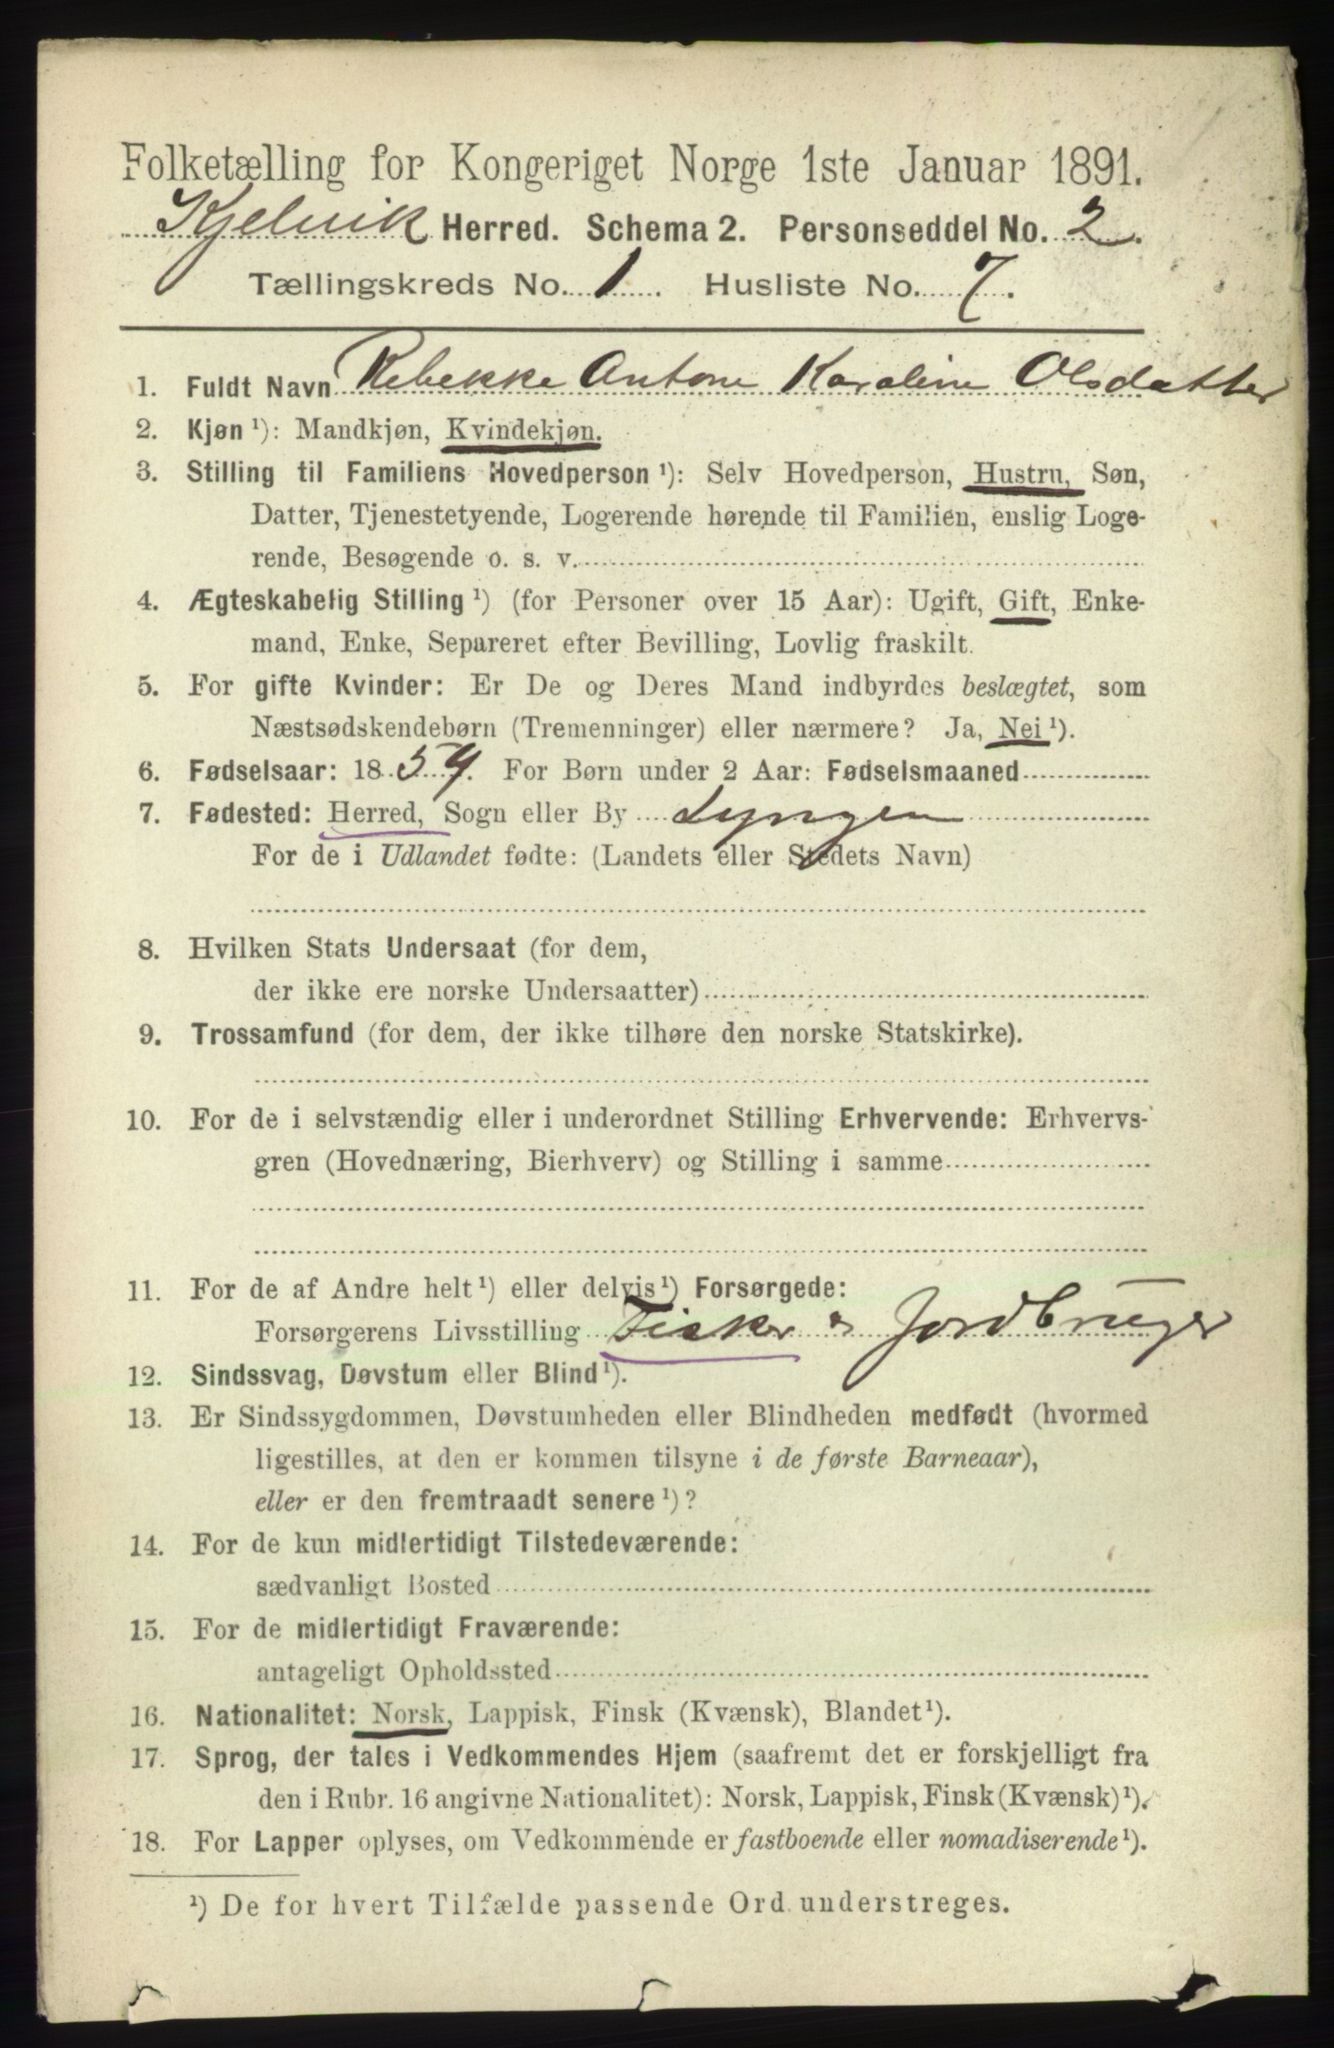 Folketælling for Kongeriget Norge 1ste Januar 1891.
Kjelvik Herred. Schema 2. Personseddel No. 2.
Tællingskreds No. 1. Husliste No. 7.
1. Fuldt Navn Rebekke Antone Karoline Olsdatter
2. Kjøn ¹): Mandkjøn, Kvindekjøn.
3. Stilling til Familiens Hovedperson ¹): Selv Hovedperson, Hustru, Søn,
Datter, Tjenestetyende, Logerende hørende til Familien, enslig Loge-
rende, Besøgende o. s. v.
4. Ægteskabelig Stilling ¹) (for Personer over 15 Aar): Ugift, Gift, Enke-
mand, Enke, Separeret efter Bevilling, Lovlig fraskilt.
5. For gifte Kvinder: Er De og Deres Mand indbyrdes beslægtet, som
Næstsødskendebørn (Tremenninger) eller nærmere? Ja, Nei ¹).
6. Fødselsaar: 1859. For Børn under 2 Aar: Fødselsmaaned
7. Fødested: Herred, Sogn eller By Lyngen
For de i Udlandet fødte: (Landets eller Stedets Navn)
8. Hvilken Stats Undersaat (for dem,
der ikke ere norske Undersaatter)
9. Trossamfund (for dem, der ikke tilhøre den norske Statskirke).
10. For de i selvstændig eller i underordnet Stilling Erhvervende: Erhvervs-
gren (Hovednæring, Bierhverv) og Stilling i samme
11. For de af Andre helt ¹) eller delvis ¹) Forsørgede:
Forsørgerens Livsstilling Fisker & Jordbruger
12. Sindssvag, Døvstum eller Blind ¹).
13. Er Sindssygdommen, Døvstumheden eller Blindheden medfødt (hvormed
ligestilles, at den er kommen tilsyne i de første Barneaar),
eller er den fremtraadt senere ¹)?
14. For de kun midlertidigt Tilstedeværende:
sædvanligt Bosted
15. For de midlertidigt Fraværende:
antageligt Opholdssted
16. Nationalitet: Norsk, Lappisk, Finsk (Kvænsk), Blandet ¹).
17. Sprog, der tales i Vedkommendes Hjem (saafremt det er forskjelligt fra
den i Rubr. 16 angivne Nationalitet): Norsk, Lappisk, Finsk (Kvænsk) ¹).
18. For Lapper oplyses, om Vedkommende er fastboende eller nomadiserende ¹).
¹) De for hvert Tilfælde passende Ord understreges.